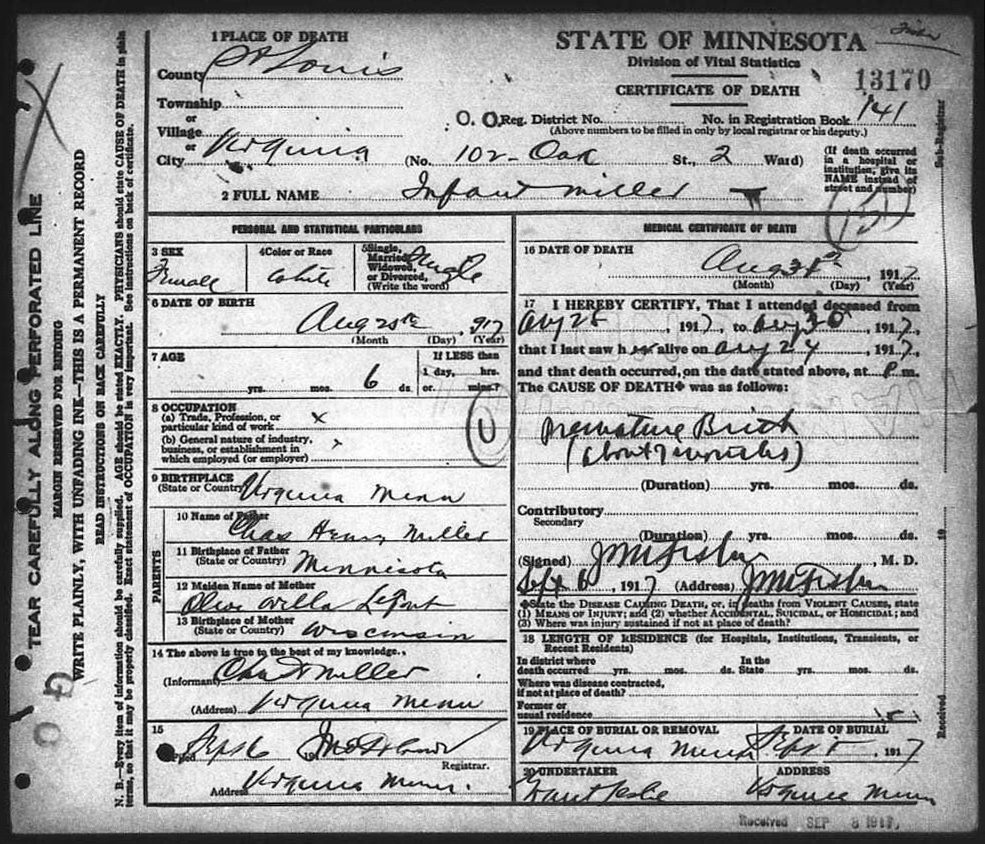 1 PLACE OF DEATH
County St Louis
Township
or
Village
or
City Virginia (No. 102 Oak St., 2 Ward)
STATE OF MINNESOTA
Division of Vital Statistics
CERTIFICATE OF DEATH
13170
O. O. Reg. District No. No. in Registration Book 141
(Above numbers to be filled in only by local registrar or his deputy.)
(If death occurred in a hospital or institution, give its NAME instead of street and number)
2 FULL NAME Infant Miller
151
PERSONAL AND STATISTICAL PARTICULARS
3 SEX Female
4 Color or Race White
5 Single, Married, Widowed, or Divorced, (Write the word) Single
6 DATE OF BIRTH
Aug 25th 1917
(Month (Day) (Year)
7 AGE
yrs. mos. 6 ds.
If LESS than
1 day, hrs.
or. mins.?
8 OCCUPATION
(a) Trade, Profession, or
particular kind of work x
(b) General nature of industry,
business, or establishment in
which employed (or employer)
U
9 BIRTHPLACE
(State or Country) Virginia Minn
PARENTS
10 Name of Father
Chas Henry Miller
11 Birthplace of Father
(State or Country) Minnesota
12 Maiden Name of Mother
Olive Villa
13 Birthplace of Mother
(State or Country) Wisconsin
14 The above is true to the best of my knowledge.
(Informant) Chas Miller
(Address) Virginia Minn
15
Filed Sept 6
Registrar.
Address Virginia Minn.
MEDICAL CERTIFICATE OF DEATH
16 DATE OF DEATH
Aug 1917
(Month) (Day) (Year)
17 I HEREBY CERTIFY, That I attended deceased from
Aug 25, 1917, to Aug 30, 1917,
that I last saw her alive on Aug 29, 1917,
and that death occurred, on the date stated above, at P. m.
The CAUSE OF DEATH✦ was as follows:
Premature Birth
(about 7 months)
(Duration) yrs. mos. ds.
Contributory
Secondary
(Duration) yrs. mos. ds.
(Signed) , M. D.
Sept 6, 1917 (Address)
✦State the DISEASE CAUSING DEATH, or, in deaths from VIOLENT CAUSES, state
(1) MEANS OF INJURY; and (2) whether ACCIDENTAL, SUICIDAL, or HOMICIDAL; and
(3) Where was injury sustained if not at place of death?
18 LENGTH OF RESIDENCE (for Hospitals, Institutions, Transients, or
Recent Residents)
In district where In the
death occurred yrs. mos. ds. State yrs. mos. ds.
Where was disease contracted,
if not at place of death?
Former or
usual residence
19 PLACE OF BURIAL OR REMOVAL
Virginia Minn
DATE OF BURIAL
Sept 1917
20 UNDERTAKER
ADDRESS
Virginia Minn
Received SEP 8 1917
TEAR CAREFULLY ALONG PERFORATED LINE
MARGIN RESERVED FOR BINDING
WRITE PLAINLY, WITH UNFADING INK—THIS IS A PERMANENT RECORD
READ INSTRUCTIONS ON BACK CAREFULLY
N. B.—Every item of information should be carefully supplied. AGE should be stated EXACTLY. PHYSICIANS should state CAUSE OF DEATH in plain
terms, so that it may be properly classified. Exact statement of OCCUPATION is very important. See instructions on back of certificate.
Sub-Registrar
19
Received